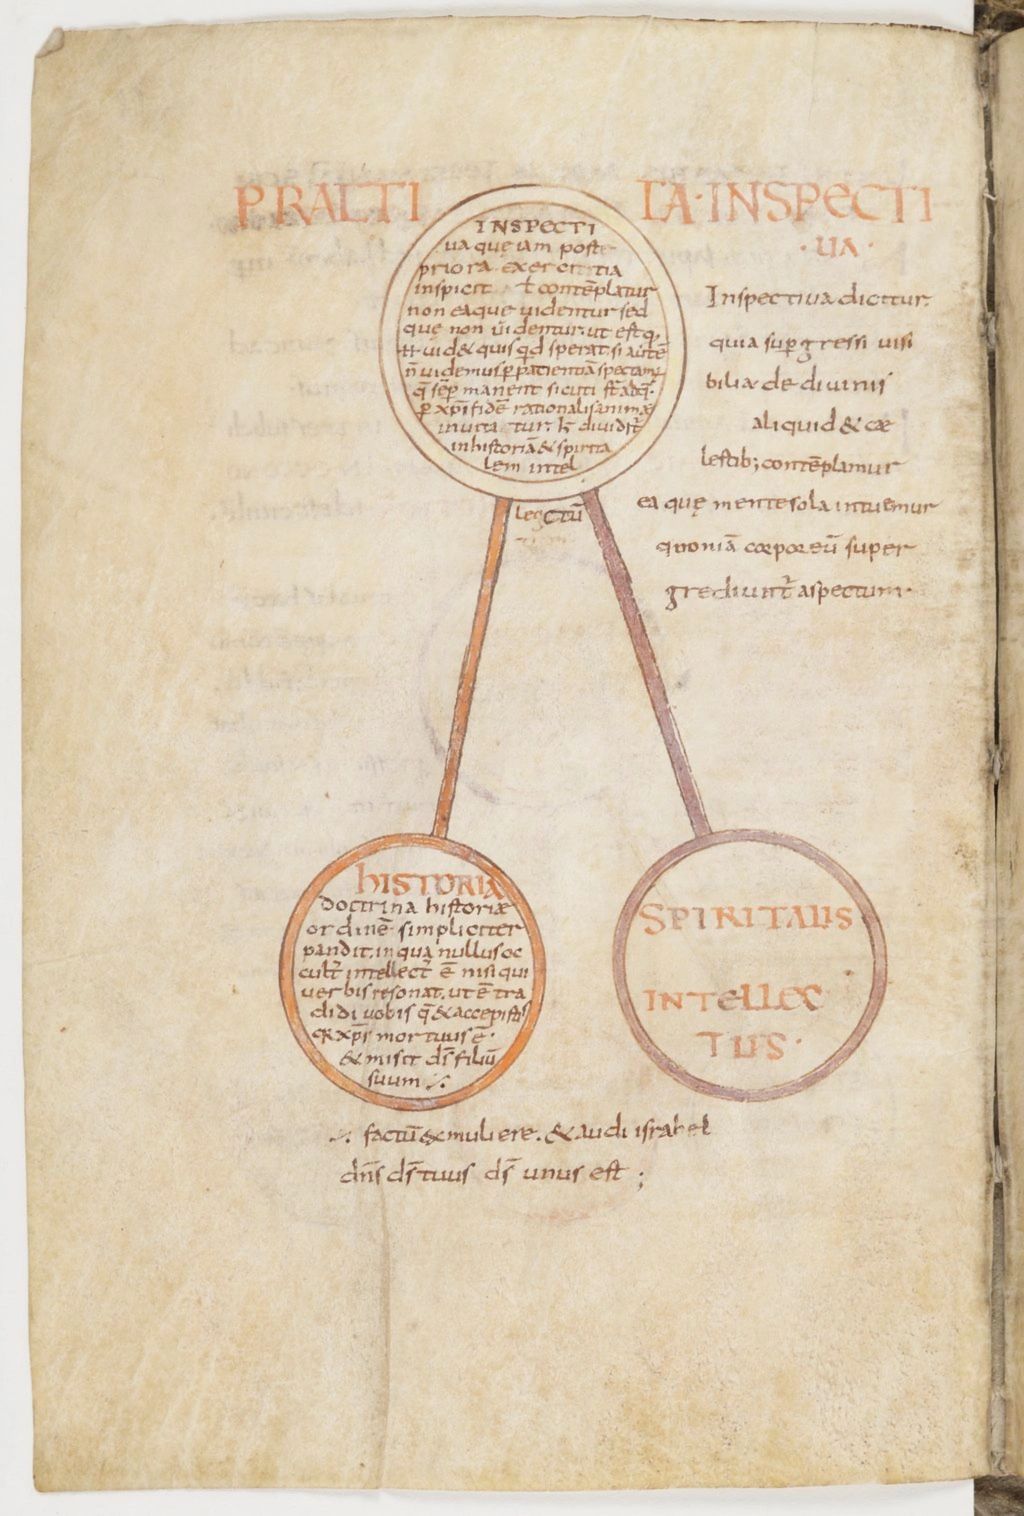 PRALTI TA·INSPECTI
·UA·
INSPECTI
ua quę iam post
priora exercititia
inspicit ł contēplatur
non ea que uidentur sed
quę non uidentur. ut est q.
uid& quis qd sperat. si autē
n̄ uidemus p patientiā spectam;
q̄ sēp manent sicuti
p xp̄i fidē rationalis animæ
inuita tur. diuidit̄
in historiā & spirita
lem intel
legctū
Inspectiua dicitur.
quia supgressi uisi
bilia de diuinis
aliquid & cæ
lestib; contēplamur
ea quę mente sola intuemur
quoniā corporeū super
grediunt̄ aspectum·
hISTORIA
doctrina historiæ
ordinē simpliciter
pandit. in qua nullus oc
cult̄ intellect̄ ē nisi qui
uerbis resonat. ut ē tra
didi uobis q̄ & accepistis
xp̄s mortuus ē·
& misit ds̄ filiū
suum ⁒
SPIRITALIS
INTELLEC
TUS·
⁒ factū ex muliere. & audi israhel
dn̄s ds̄ tuus ds̄ unus est ;